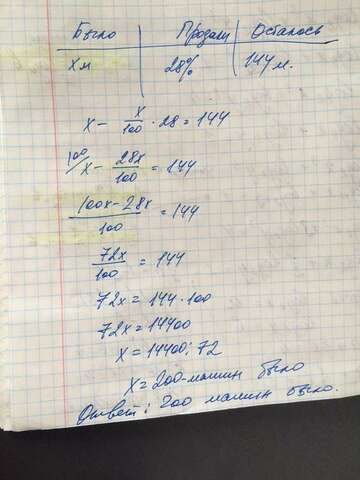 Было Продали Осталось
х м 28% 144 м.
х - х/100 · 28 = 144
100/ х - 28х/100 = 144
100х - 28х/100 = 144
72х/100 = 144
72х = 144 · 100
72х = 14400
х = 14400 : 72
х = 200 - машин было
Ответ: 200 машин было.